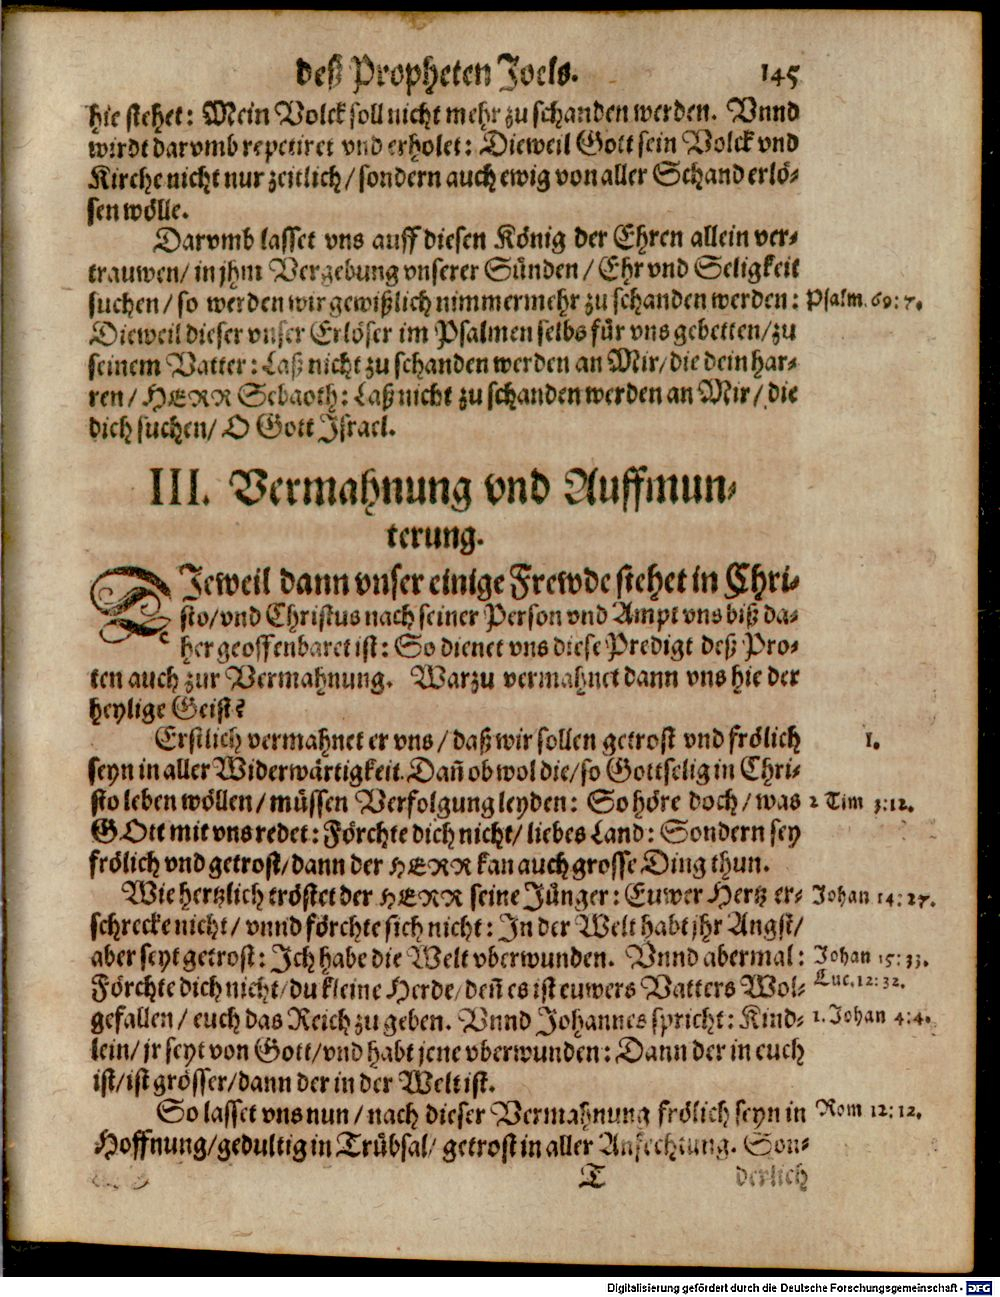 deß Propheten Joels. 145
hie stehet: Mein Volck soll nicht mehr zu schanden werden. Vnnd
wirdt darvmb repetiret vnd erholet: Dieweil Gott sein Volck vnd
Kirche nicht nur zeitlich/ sondern auch ewig von aller Schand erlö-
sen wölle.
Darvmb lasset vns auff diesen König der Ehren allein ver-
trauwen/ in jhm Vergebung vnserer Sünden/ Ehr vnd Seligkeit
suchen/ so werden wir gewißlich nimmermehr zu schanden werden: Psalm. 69: 7.
Dieweil dieser vnser Erlöser im Psalmen selbs für vns gebetten/ zu
seinem Vatter: Laß nicht zu schanden werden an Mir/ die dein har-
ren/ HERR Sebaoth: Laß nicht zu schanden werden an Mir/ die
dich suchen/ O Gott Israel.
III. Vermahnung vnd Auffmun-
terung.
DIeweil dann vnser einige Frewde stehet in Chri-
sto/ vnd Christus nach seiner Person vnd Ampt vns biß da-
her geoffenbaret ist: So dienet vns diese Predigt deß Pro-
ten auch zur Vermahnung. Warzu vermahnet dann vns hie der
heylige Geist?
Erstlich vermahnet er vns/ daß wir sollen getrost vnd frölich 1.
seyn in aller Widerwärtigkeit. Dañ ob wol die/ so Gottselig in Chri-
sto leben wöllen/ müssen Verfolgung leyden: So höre doch/ was 2 Tim 3: 12.
GOtt mit vns redet: Förchte dich nicht/ liebes Land: Sondern sey
frölich vnd getrost/ dann der HERR kan auch grosse Ding thun.
Wie hertzlich tröstet der HERR seine Jünger: Euwer Hertz er- Johan 14: 27.
schrecke nicht/ vnnd förchte sich nicht: In der Welt habt jhr Angst/
aber seyt getrost: Ich habe die Welt vberwunden. Vnnd abermal: Johan 15: 33.
Förchte dich nicht/ du kleine Herde/ deñ es ist euwers Vatters Wol- Luc. 12: 32.
gefallen/ euch das Reich zu geben. Vnnd Johannes spricht: Kind- 1. Johan 4: 4.
lein/ jr seyt von Gott/ vnd habt jene vberwunden: Dann der in euch
ist/ ist grösser/ dann der in der Welt ist.
So lasset vns nun/ nach dieser Vermahnung frölich seyn in Rom 12: 12.
Hoffnung/ gedultig in Trübsal/ getrost in aller Anfechtung. Son-
T derlich
Digitalisierung gefördert durch die Deutsche Forschungsgemeinschaft - DFG